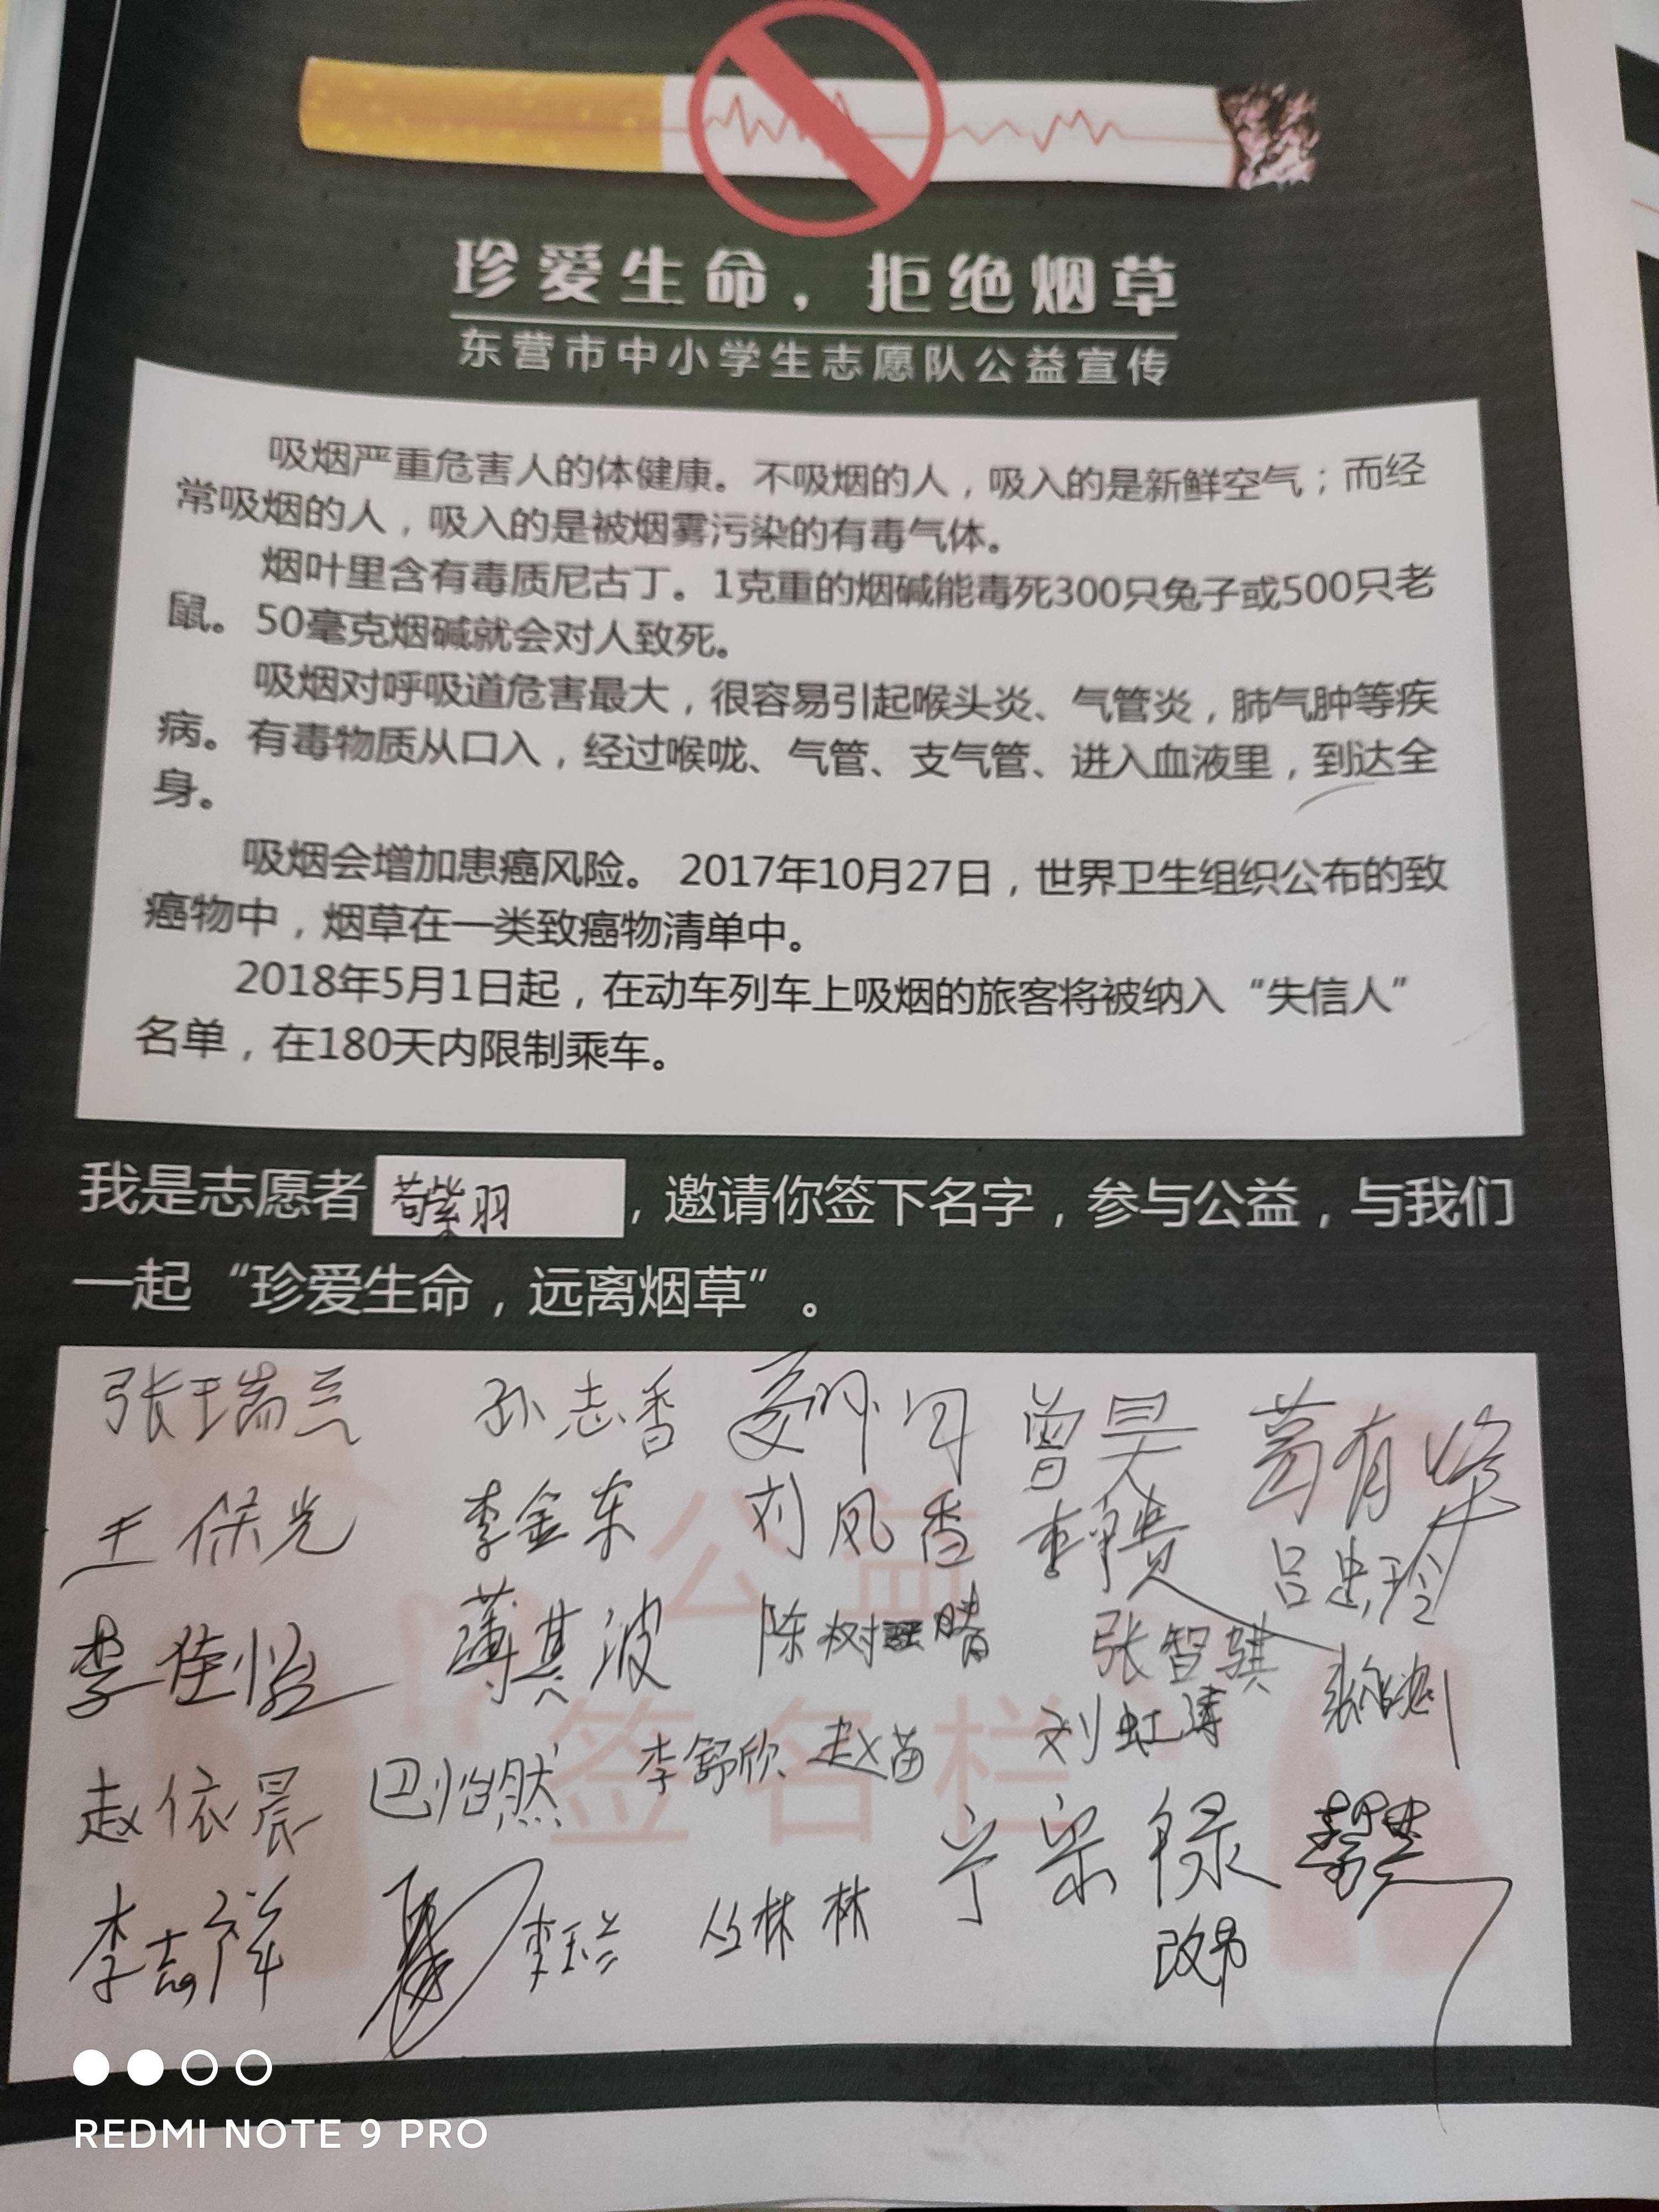 珍爱生命，拒绝烟草
东营市中小学生志愿队公益宣传
吸烟严重危害人的体健康。不吸烟的人，吸入的是新鲜空气；而经
常吸烟的人，吸入的是被烟雾污染的有毒气体。
烟叶里含有毒质尼古丁。1克重的烟碱能毒死300只兔子或500只老
鼠。50毫克烟碱就会对人致死。
吸烟对呼吸道危害最大，很容易引起喉头炎、气管炎，肺气肿等疾
病。有毒物质从口入，经过喉咙、气管、支气管、进入血液里，到达全
身。
吸烟会增加患癌风险。 2017年10月27日，世界卫生组织公布的致
癌物中，烟草在一类致癌物清单中。
2018年5月1日起，在动车列车上吸烟的旅客将被纳入“失信人”
名单，在180天内限制乘车。
我是志愿者 苟紫羽 ，邀请你签下名字，参与公益，与我们
一起“珍爱生命，远离烟草”。
公益
签名栏
张瑞兰 孙志香 曾昊
王保光 李金东 刘凤香 吕忠玲
李佳怡 薄其波 陈树晴 张智骐
赵依晨 巴怡然 李舒欣 赵苗 刘虹涛
宁宗禄
李志祥 李玉兰 丛林林
REDMI NOTE 9 PRO